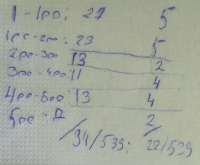 1-100: 27 5
100-200: 23 5
200-300 13 2
300-400 11 4
400-500 13 4
500- 2
/94/539: 22/539